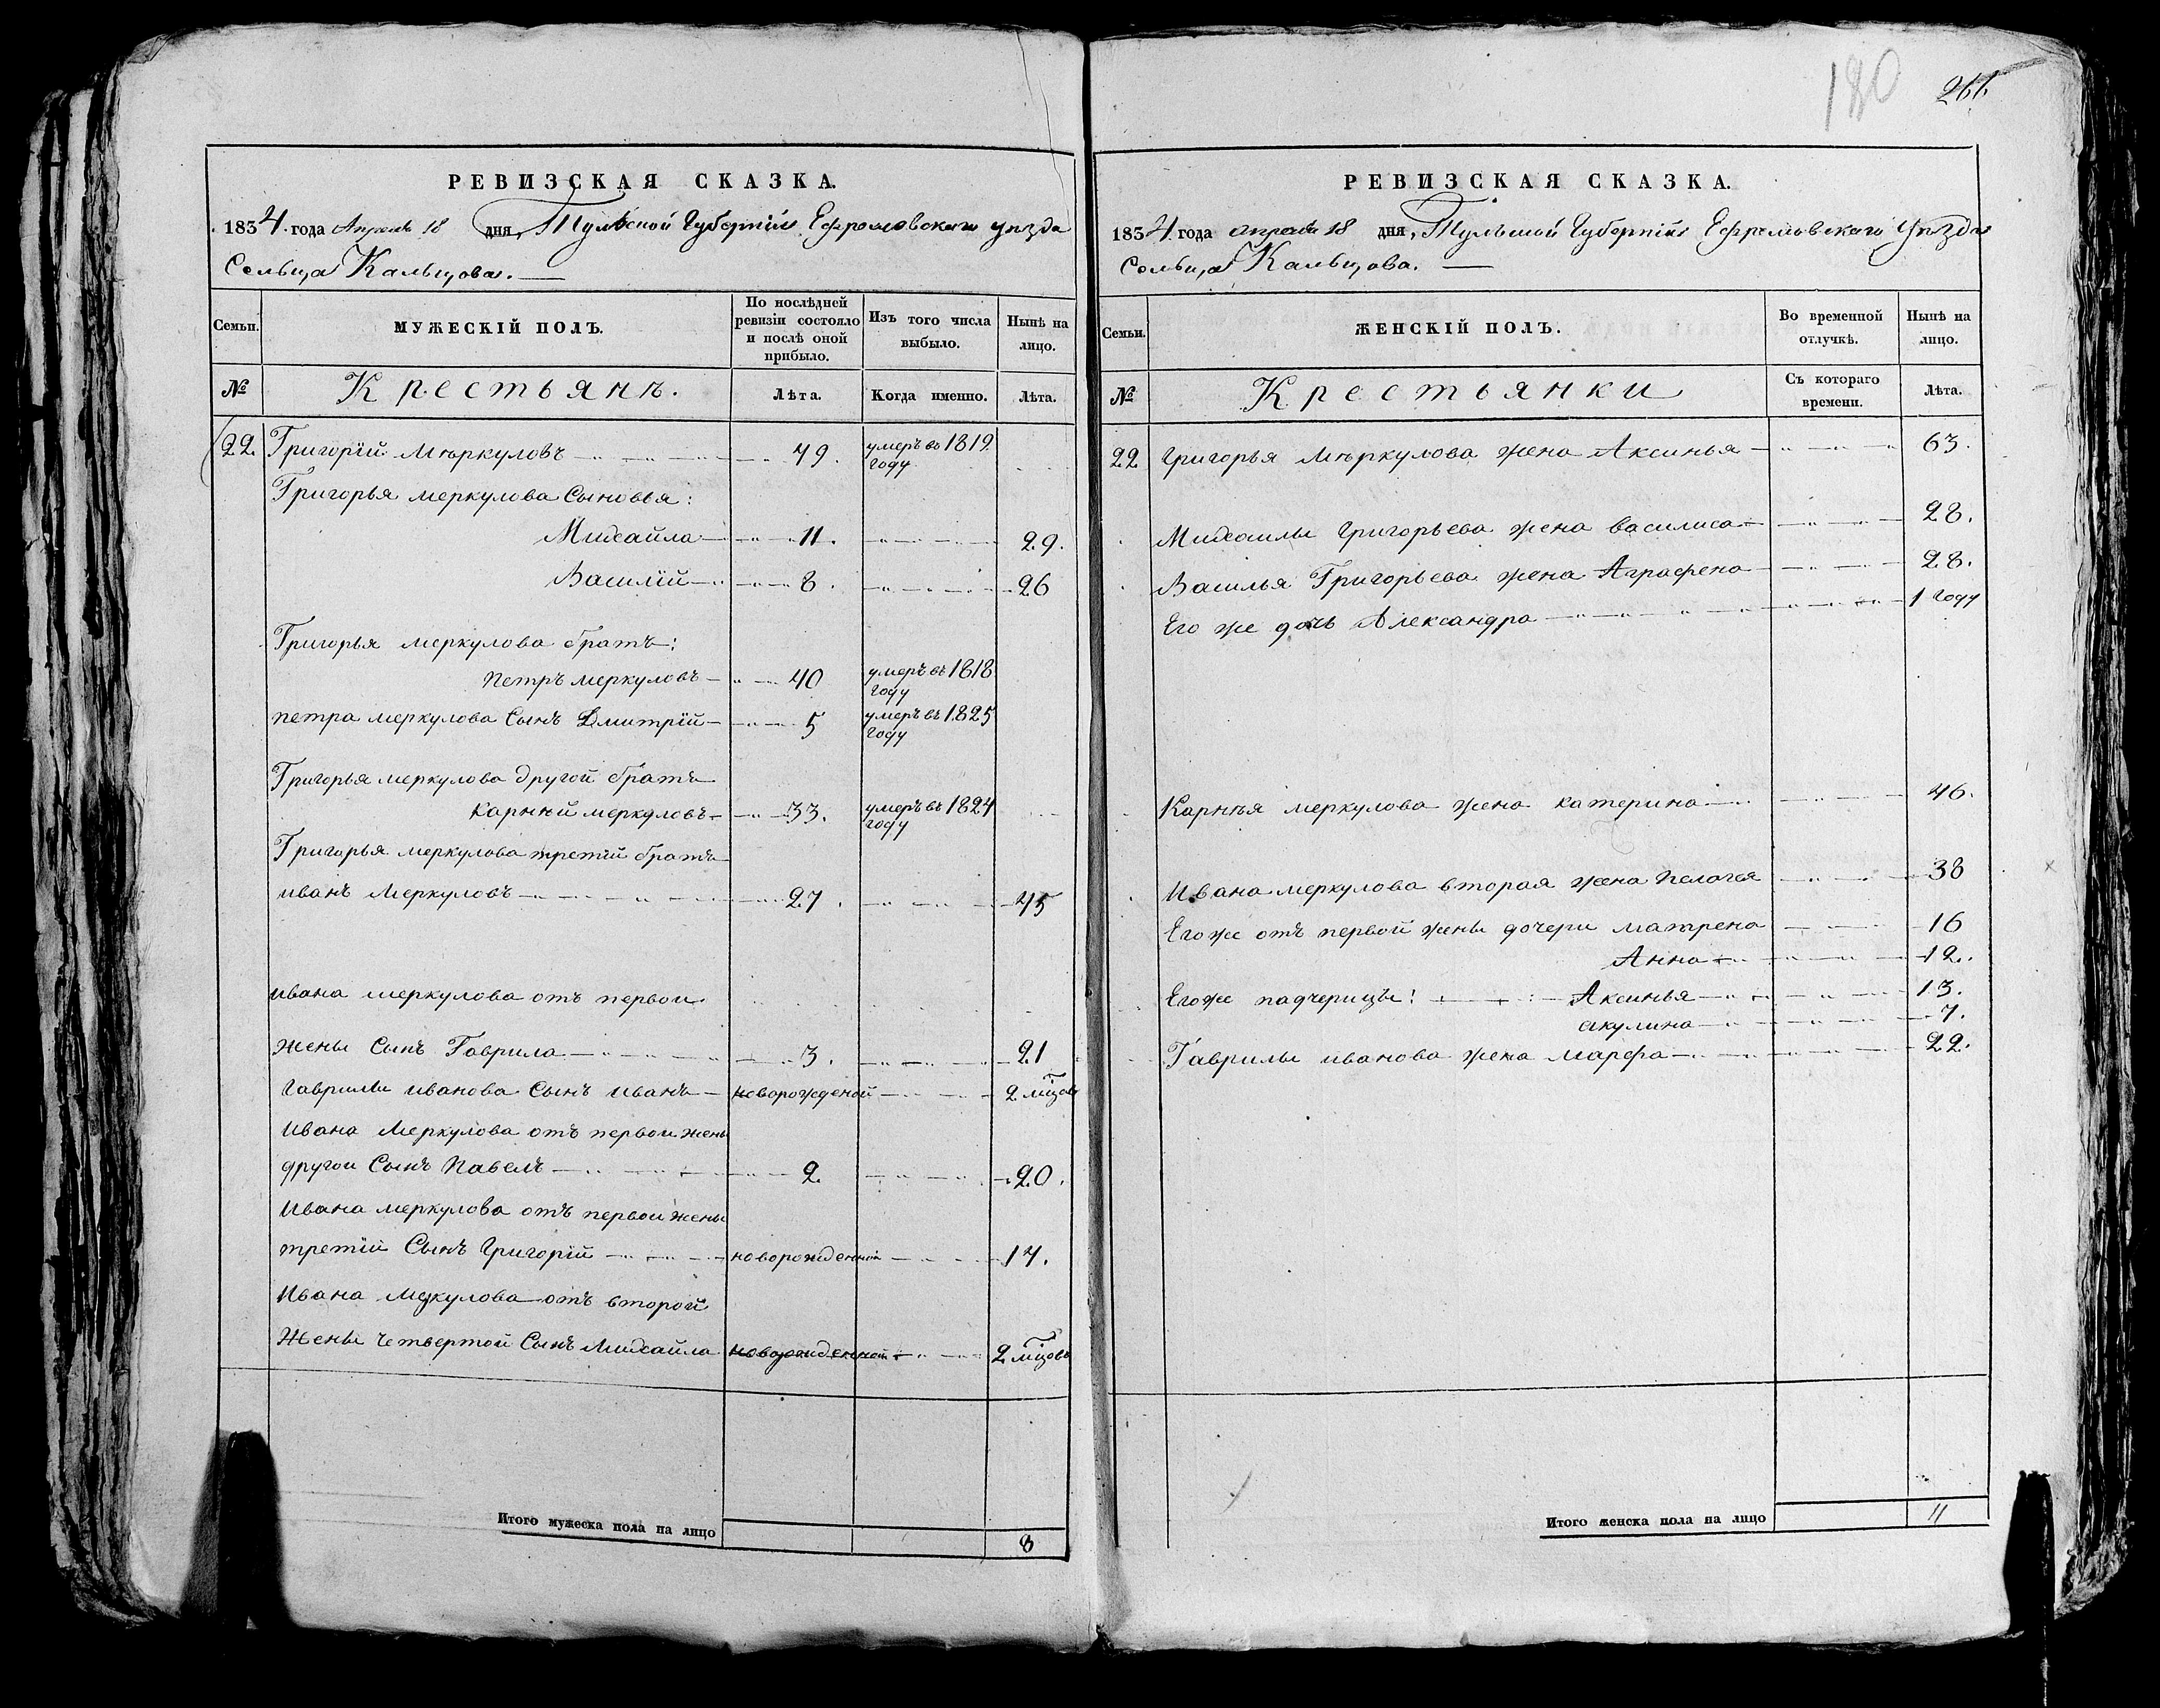 180
266
РЕВИЗСКАЯ СКАЗКА.
1834. года Апреля 18 дня, Тульской Губернiи Ефремовскаго уѣзда
Сельца Кальцова. —
Семьи.
МУЖЕСКІЙ ПОЛЪ.
По послѣдней ревизіи состояло и послѣ оной прибыло.
Изъ того числа выбыло.
Нынѣ на лицо.
№
Крестьянъ.
Лѣта.
Когда именно.
Лѣта.
22. Григорiй Мѣркуловъ 49. умеръ въ 1819. году
Григорья меркулова Сыновья:
Михайла 11. 29.
Василiй 8. 26
Григорья меркулова братъ:
Петръ меркуловъ 40 умеръ въ 1818 году
петра меркулова Сынъ Дмитрiй 5 умеръ въ 1825 году
Григорья меркулова другой братъ
Карнѣй меркуловъ 33. умеръ въ 1824 году
Григорья меркулова третiй братъ
иванъ Меркуловъ 27. 45
ивана меркулова отъ первой
жены Сынъ Гаврила 3. 21
Гаврилы иванова Сынъ иванъ новорожденой 2 мцов
Ивана Меркулова отъ первой жены
другой Сынъ Павелъ 2. 20.
Ивана меркулова отъ первой жены
третiй Сынъ Григорiй новорожденной 17.
Ивана Меркулова отъ второй
Жены четвертой Сынъ Михайла новорожденной 2 мцовъ
Итого мужеска пола на лицо 8
РЕВИЗСКАЯ СКАЗКА.
1834. года апреля 18 дня, Тульской Губернiи Ефремовскаго Уѣзда
Сельца Кальцова. —
Семьи.
ЖЕНСКІЙ ПОЛЪ.
Во временной отлучкѣ.
Нынѣ на лицо.
№
Крестьянки
Съ котораго времени.
Лѣта.
22 Григорья Мѣркулова жена Аксинья 63.
Михаилы Григорьева жена Василиса 28.
Василья Григорьева жена Аграфена 28.
Его же дочь Александра 1 году
Карнѣя меркулова жена катерина 46.
Ивана меркулова вторая жена Пелагея 38
Его же отъ первой жены дочери матрена 16
Анна 12.
Его же падчерицы: Аксинья 13.
акулина 7.
Гаврилы иванова жена марфа 22.
Итого женска пола на лицо 11